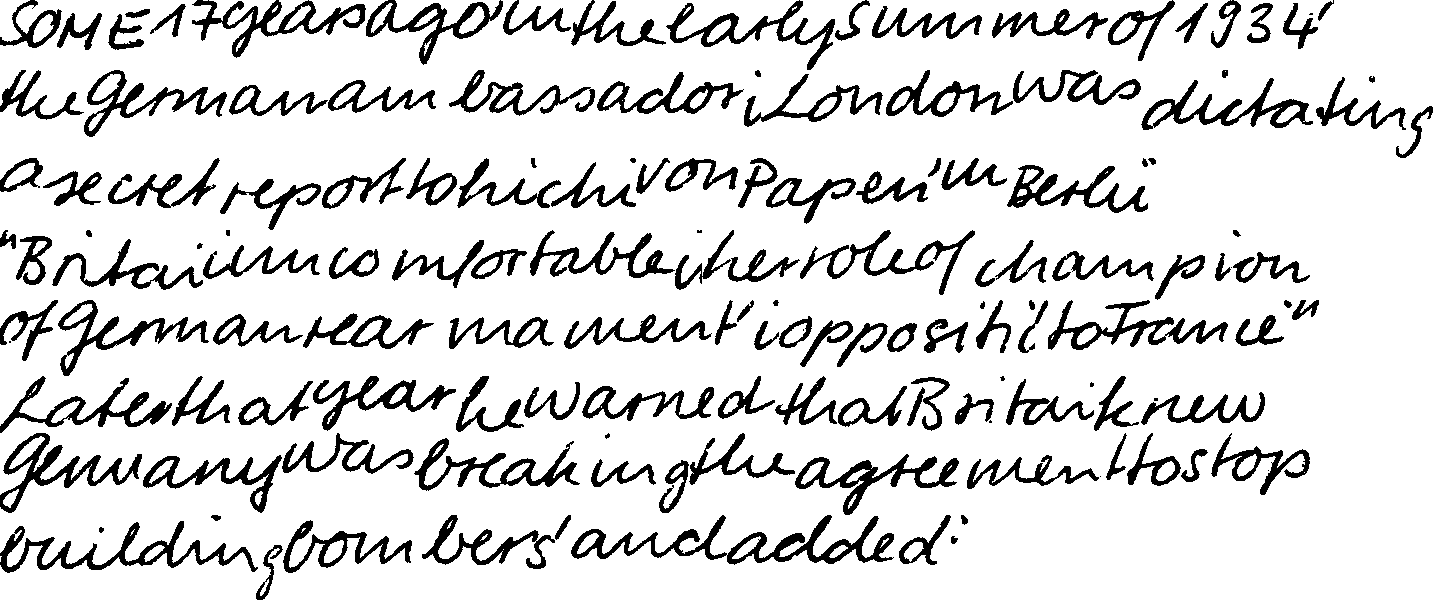 SOME 17 years ago, in the early summer of 1934,
the German ambassador in London was dictating
a secret report to his chief von Papen, in Berlin.
"Britain is uncomfortable in her role of champion
of German rearmament, in opposition to France."
Later that year he warned that Britain knew
Germany was breaking the agreement to stop
building bombers, and added: